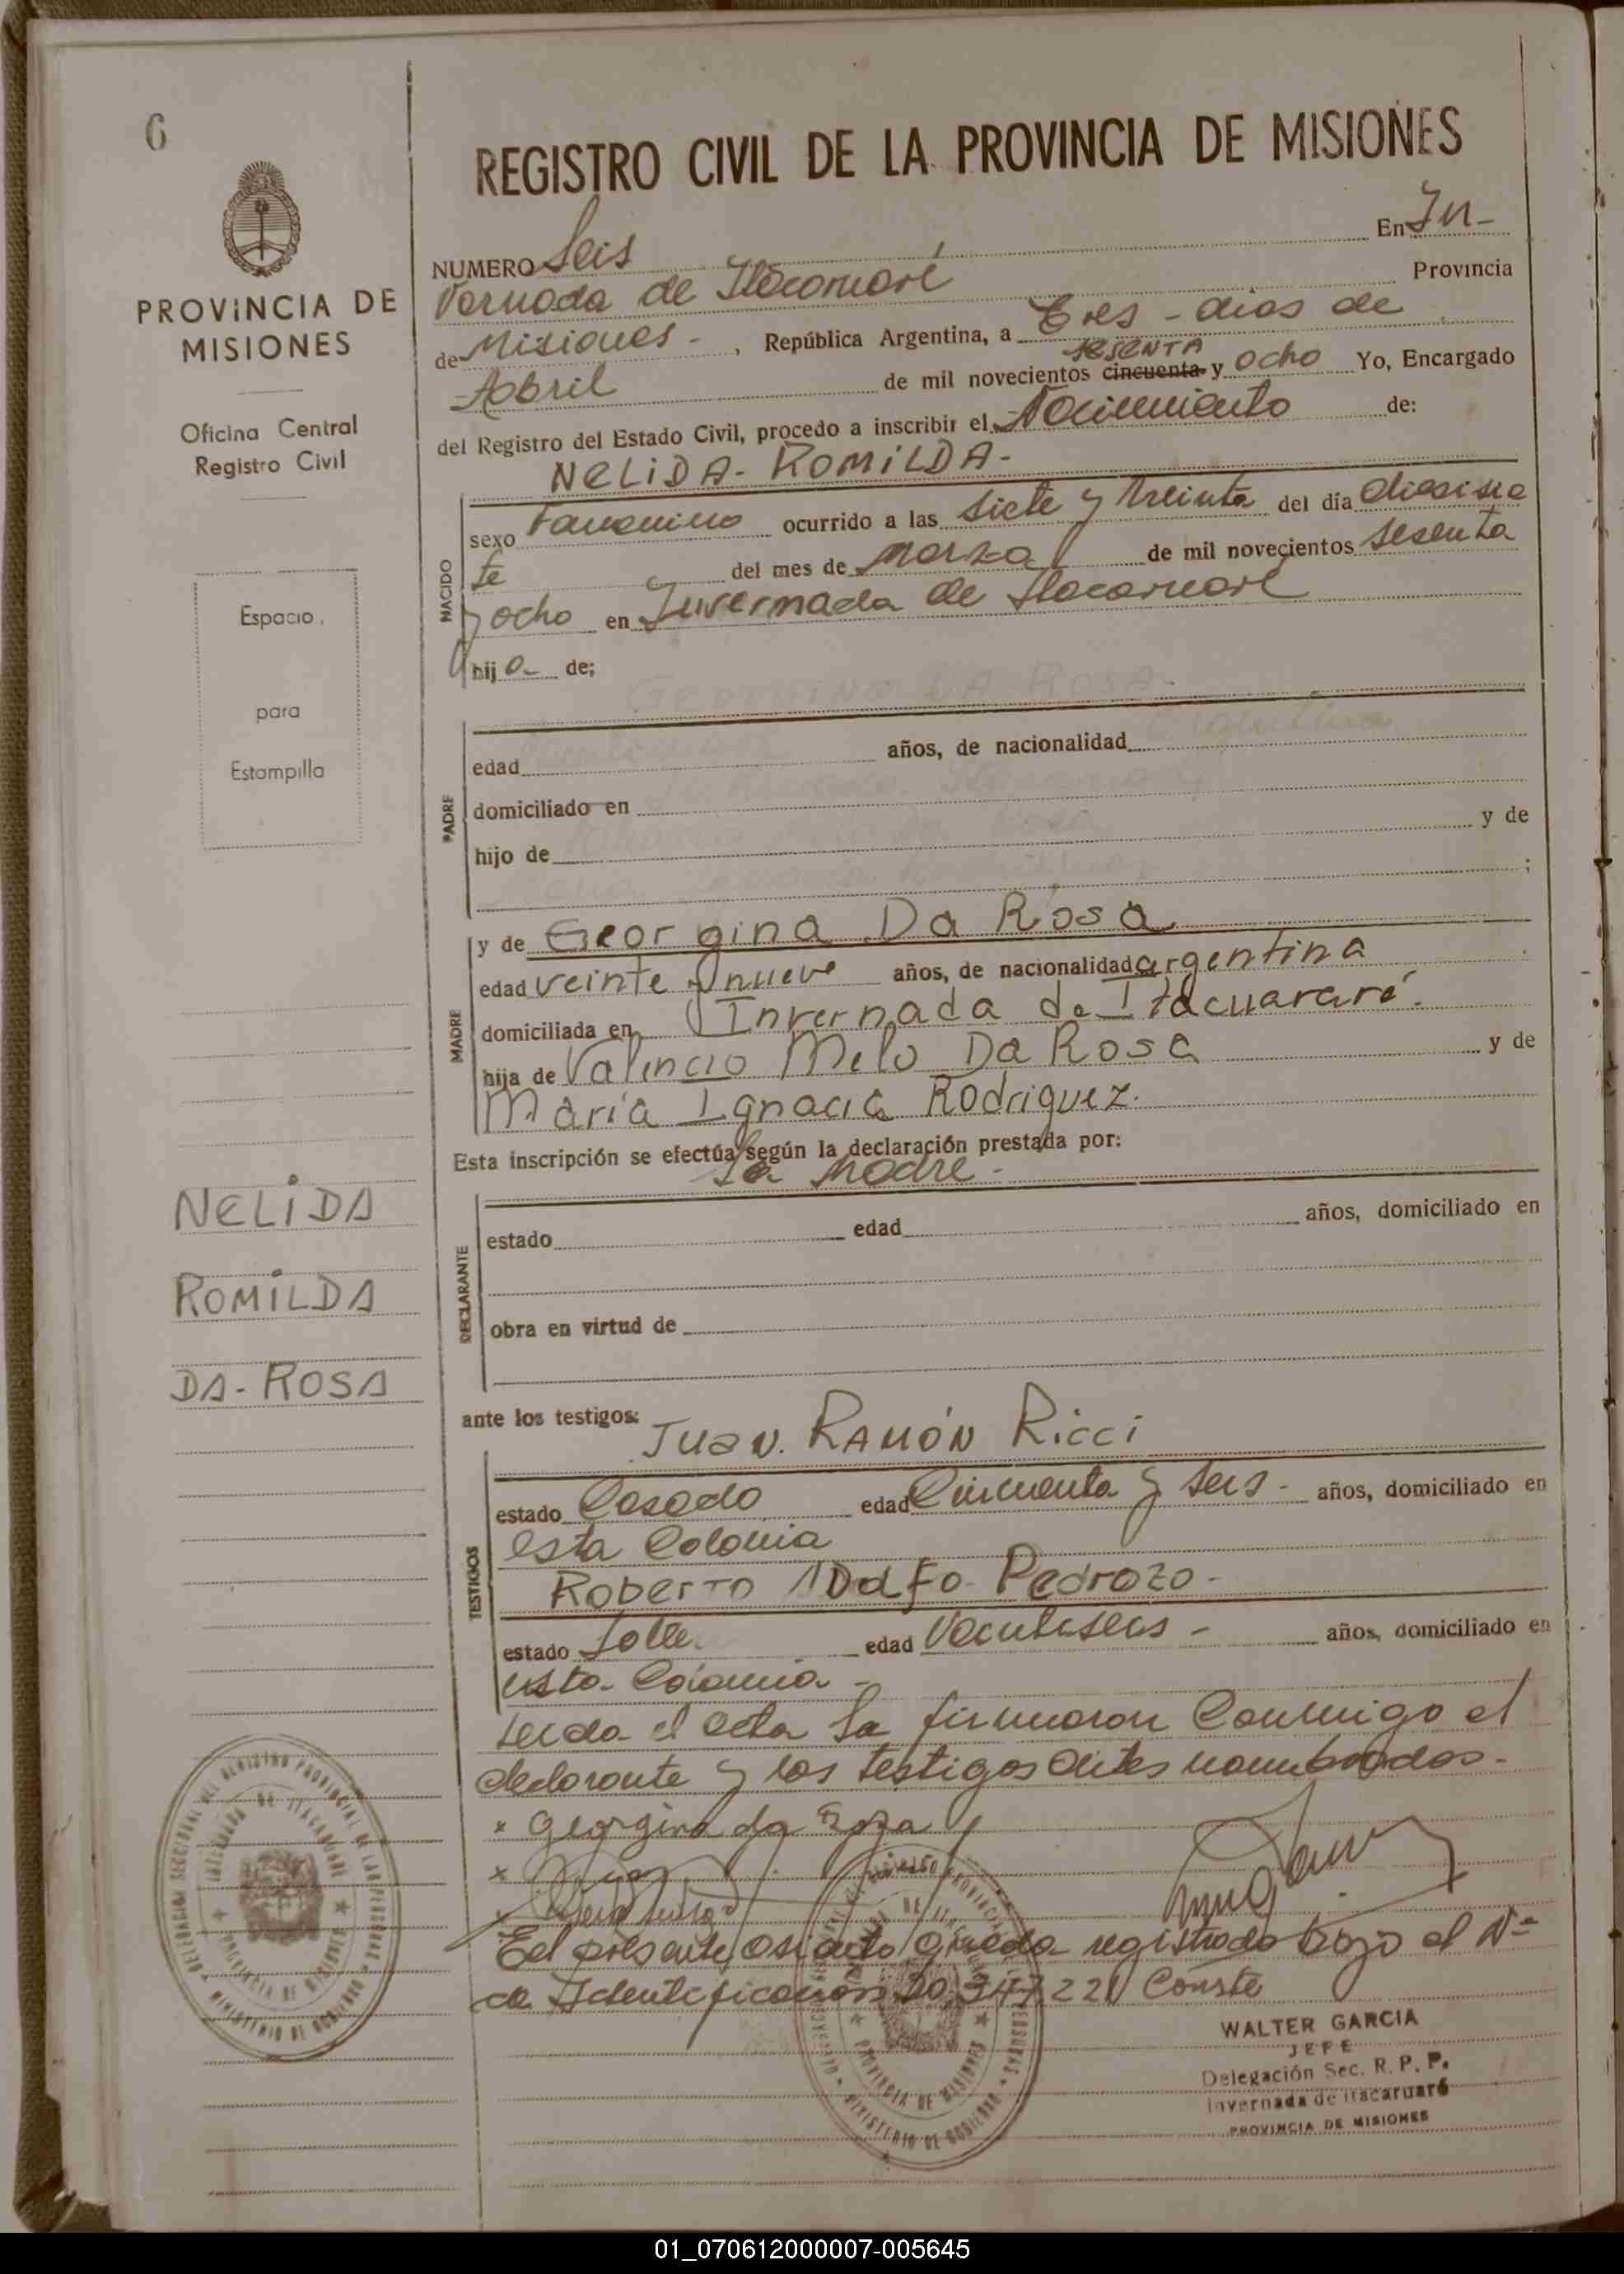 6
PROVINCIA DE
MISIONES
Oficina Central
Registro Civil
Espacio
para
Estampilla
NELIDA
ROMILDA
DA-ROSA
REGISTRO CIVIL DE LA PROVINCIA DE MISIONES
NUMERO Seis En In-
vernada de Itacaruaré Provincia
de Misiones - , República Argentina, a Tres - dias de
Abril de mil novecientos cincuenta SESENTA y ocho Yo, Encargado
del Registro del Estado Civil, procedo a inscribir el Nacimiento de:
NELIDA - ROMILDA -
NACIDO
sexo Femenino ocurrido a las siete y treinta del día diesisie
te del mes de marzo de mil novecientos sesenta
y ocho en Invernada de Itacaruaré
hij a- de;
PADRE
edad años, de nacionalidad
domiciliado en
hijo de y de
;
MADRE
y de Georgina Da Rosa
edad veinte y nueve años, de nacionalidad argentina
domiciliada en Invernada de Itacuararé.
hija de Valencio Melo Da Rosa y de
María Ignacia Rodriguez.
Esta inscripción se efectúa según la declaración prestada por:
La Madre -
DECLARANTE
estado edad años, domiciliado en
obra en virtud de
ante los testigos:
Juan. RAMÓN Ricci
TESTIGOS
estado Casado edad Cincuenta y seis - años, domiciliado en
esta Colonia
Roberto ADolFo Pedrozo -
estado Solte edad Veintiseis - años, domiciliado en
esta Colonia -
Leida el acta la firmaron Conmigo el
declarante y los testigos antes nombrados -
x georgina da Roza
x
El presente asiento queda registrado bajo el Nº
de Identificacion 20.347.221 Conste
DELEGACION SECCIONAL DEL REGISTRO PROVINCIAL DE LAS PERSONAS
INVERNADA DE ITACARUARE
PROVINCIA DE MISIONES
MINISTERIO DE GOBIERNO
WALTER GARCIA
JEFE
Delegación Sec. R. P. P.
Invernada de Itacaruaré
PROVINCIA DE MISIONES
01_070612000007-005645